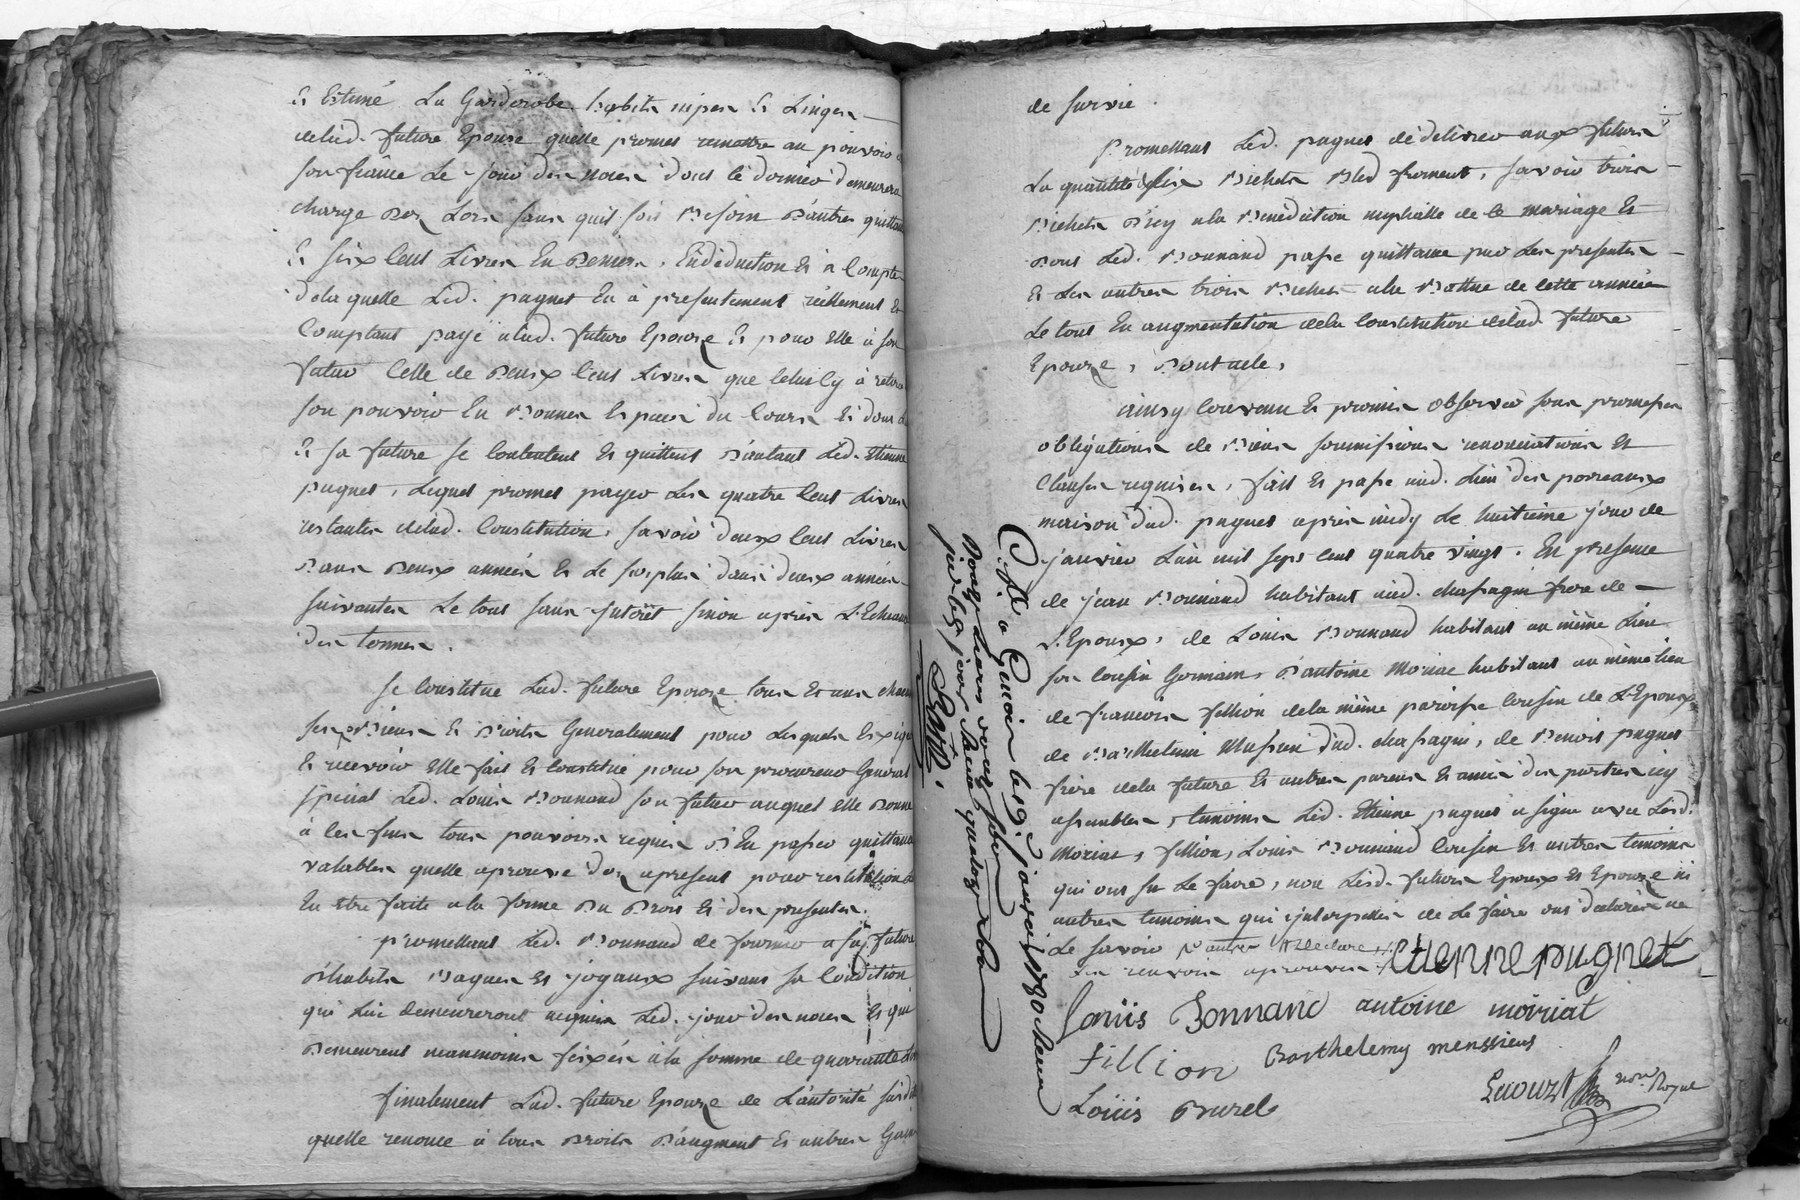 Et Estimé La Garderobe habits nipes Et Linges
delad. future Epouse quelle promet remettre au pouvoir de
son fiancé Le jour des noces dont ce dernier demeurera
chargé Des Lors sans quil soit Besoin D'autre quittance
Et Six Cent Livres En Deniers, En déduction Et à Compte
de la quelle Led. pugnet En à presentement réellement Et
Comptant payé à lad. future Epouze Et pour Elle à son
futur Celle de Deux Cent Livres que Celuicy à retiré
son pouvoir En Bonnes Espèces du Cours Et dont
Et sa future se Contentent Et quittent D'autant Led. Etienne
pugnet, Lequel promet payer Les quatre Cent Livres
restantes delad. Constitution, Savoir deux Cent Livres
Dans Deux années Et Le surplus dans deux années
suivantes Le tout sans Interêt sinon après L'Echeance
des termes.
Se Constitue Lad. future Epouze tous Et uns chacuns
ses Biens Et Droits Generalement pour Lesquels Exiger
Et recevoir Elle fait Et Constitue pour son procureur General
spécial Led. Louis Bonnand son futur auquel Elle Donne
à Ces fins tous pouvoirs requis D'En passer quittance
valables quelle aprouve des apresent pour restitution
En Etre faite a la forme Du Droit Et des presentes.
promettant Led. Bonnand de fournir a sa future
D'habits Bagues Et joyaux suivant sa Condition
qui Lui demeureront acquis Led. jour des noces Et qui
Demeurent neanmoins fixés à la somme de quarante
finalement Lad. future Epouze de L'autorité susdite
quelle renonce à tous Droits D'augment Et autres Gains
de survie.
Promettant Led. pugnet de delivrer aux futurs
La quantité de six Bichets Bled froment, savoir trois
Bichets D'icy a la Benediction nuptialle de Ce mariage Et
Dont Led. Bonnand passe quittance par Les presentes
Et Les autres trois Bichets a la de Cette année
Le tout En augmentation dela Constitution delad. future
Epouze, Dont acte,
Ainsy Convenu Et promis observer sous promesses
obligations de Biens soumissions renonciations Et
Clauses requises, fait Et passé aud. Lieu des poncaux
maison dud. pugnet après midy Le huitieme jour de
janvier L'an mil sept Cent quatre vingt. En presence
de jean Bonnand habitant aud. chassagni frere de
L'Epoux, de Louis Bonnand habitant au même Lieu
son Cousin Germain, D'antoine Moriat habitant au même lieu
de francois fillion dela même paroisse Cousin de L'Epoux
de Barthelemi dud. chassagni, de Benoit pugnet
frere dela future Et autres parens Et amis des parties icy
assemblés, temoins Led. Etienne pugnet a signé avec Lesd.
Moriat, fillion, Louis Bonnand Cousin Et autres temoins
qui ont su Le faire, non Lesd. futurs Epoux Et Epouze ni
autres temoins qui interpellés de Le faire ont déclarés ne
Le savoir
renvois aprouvés
etienne pugnet
Louis Bonnand antoine moiriat
fillion Barthelemy menssieus
Louis Burel
not. Royal
Cllé a Givors le 19e janvier 1780 Reçu